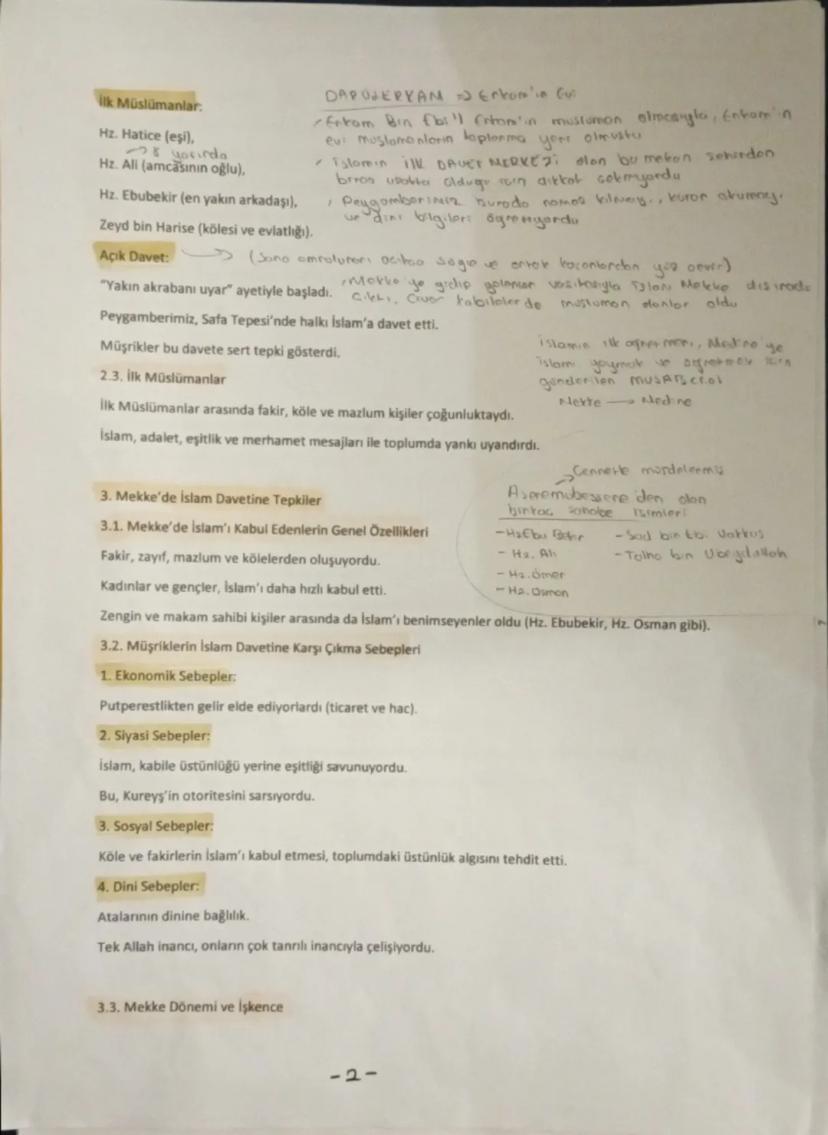 İlk Müslümanlar:
DARULERKAM => Erkam'ın Evi
Hz. Hatice (eşi),
8 yaşında
Hz. Ali (amcasının oğlu),
Hz. Ebubekir (en yakın arkadaşı),
Zeyd bin Harise (kölesi ve evlatlığı).
Erkam Bin Ebi'l Erkam'ın müslüman olmasıyla, Erkam'ın
evi müslümanların toplanma yeri olmuştu
İslamın İLK DAVET MERKEZİ olan bu mekan şehirden
biraz uzakta olduğu için dikkat çekmiyordu
Peygamberimiz burada namaz kılmayı, kuran okumayı
ve dini bilgileri öğretiyordu
Açık Davet:
(Sana emrolunanı açıkça söyle ve ortak koşanlardan yüz çevir)
"Yakın akrabanı uyar" ayetiyle başladı.
Mekke'ye gidip gelenler vasıtasıyla İslam Mekke dışında
çıktı. Civar kabilelerde müslüman olanlar oldu
Peygamberimiz, Safa Tepesi'nde halkı İslam'a davet etti.
Müşrikler bu davete sert tepki gösterdi.
İslamın ilk öğretmeni, Medine'ye
İslamı yaymak ve öğretmek için
gönderilen
Mekke → Medine
2.3. İlk Müslümanlar
İlk Müslümanlar arasında fakir, köle ve mazlum kişiler çoğunluktaydı.
İslam, adalet, eşitlik ve merhamet mesajları ile toplumda yankı uyandırdı.
3. Mekke'de İslam Davetine Tepkiler
3.1. Mekke'de İslam'ı Kabul Edenlerin Genel Özellikleri
Fakir, zayıf, mazlum ve kölelerden oluşuyordu.
Kadınlar ve gençler, İslam'ı daha hızlı kabul etti.
Cennetle
Aşeremübeşşere'den olan
birkaç sahabe isimleri
- Hz Ebu Bekir
- Hz. Ali
- Hz. Ömer
- Hz. Osman
- Sad bin Ebi Vakkas
- Talha bin Ubeydallah
Zengin ve makam sahibi kişiler arasında da İslam'ı benimseyenler oldu (Hz. Ebubekir, Hz. Osman gibi).
3.2. Müşriklerin İslam Davetine Karşı Çıkma Sebepleri
1. Ekonomik Sebepler:
Putperestlikten gelir elde ediyorlardı (ticaret ve hac).
2. Siyasi Sebepler:
İslam, kabile üstünlüğü yerine eşitliği savunuyordu.
Bu, Kureyş'in otoritesini sarsıyordu.
3. Sosyal Sebepler:
Köle ve fakirlerin İslam'ı kabul etmesi, toplumdaki üstünlük algısını tehdit etti.
4. Dini Sebepler:
Atalarının dinine bağlılık.
Tek Allah inancı, onların çok tanrılı inancıyla çelişiyordu.
3.3. Mekke Dönemi ve İşkence
-2-